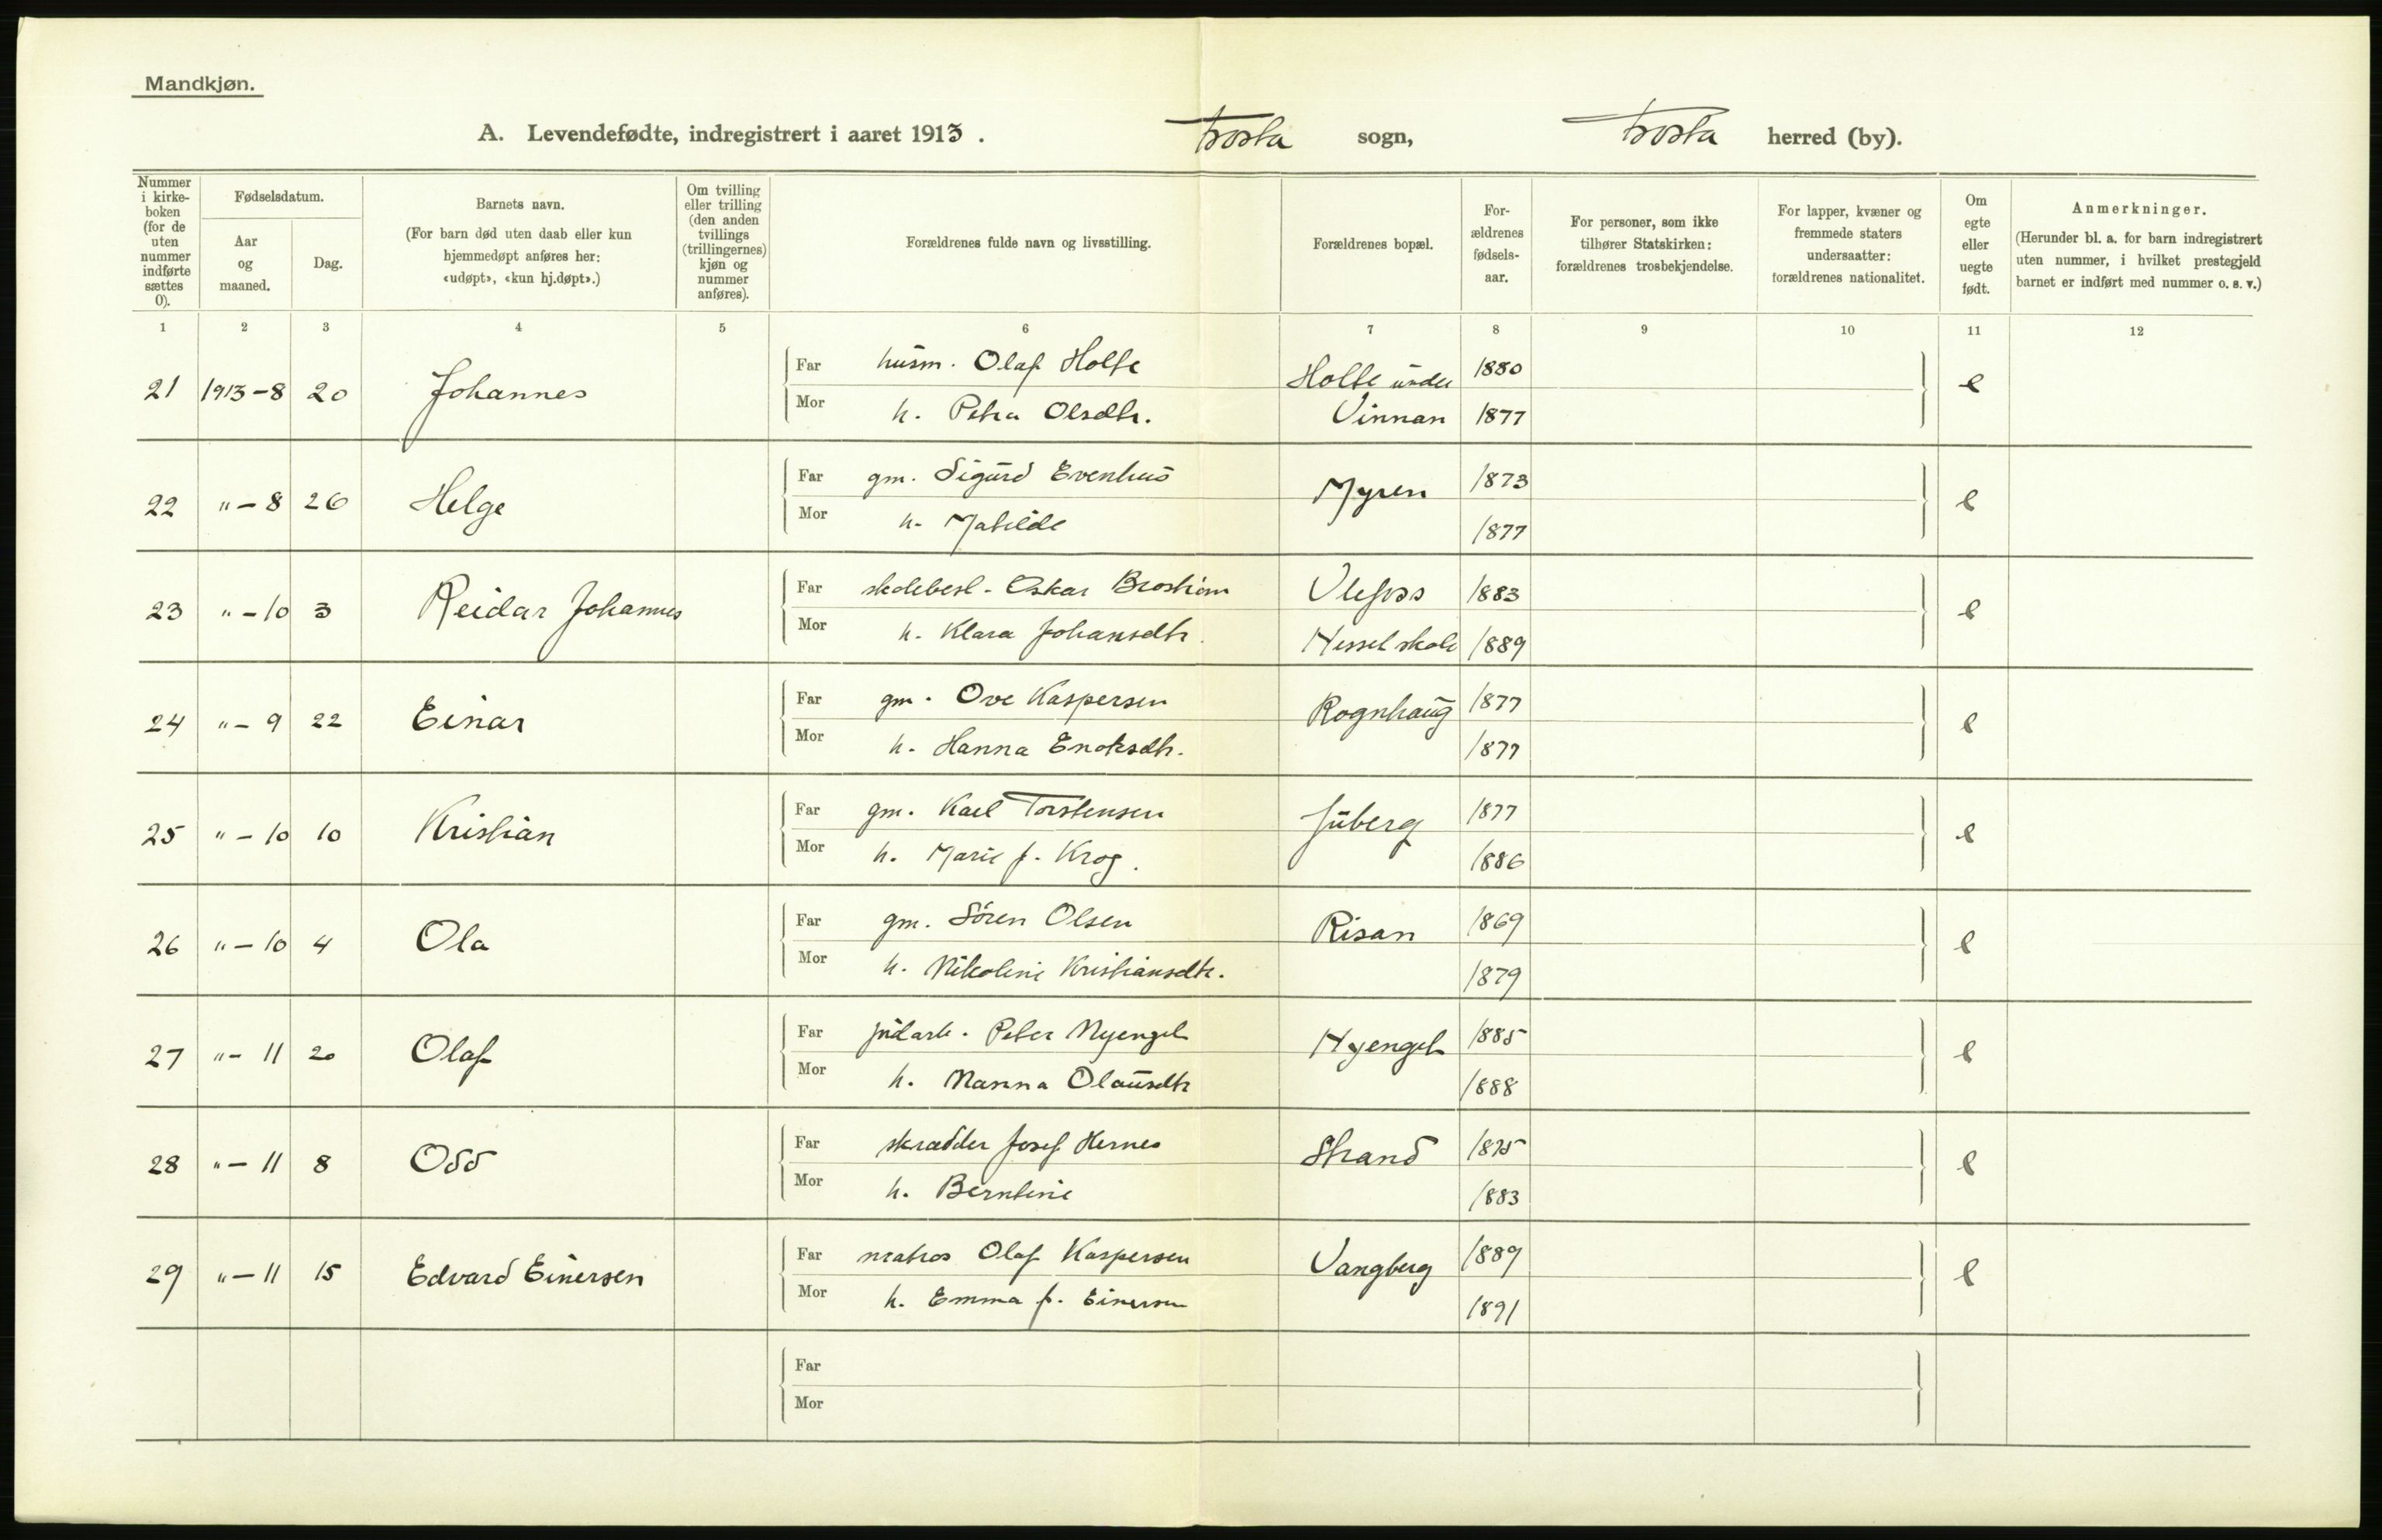 Mandkjøn.
A. Levendefødte, indregistrert i aaret 1913. Frosta sogn, Frosta herred (by).
Nummer i kirke-boken (for de uten nummer indførte sættes 0).
Fødselsdatum.
Aar og maaned.
Dag.
Barnets navn.
(For barn død uten daab eller kun hjemmedøpt anføres her: «udøpt», «kun hj.døpt».)
Om tvilling eller trilling (den anden tvillings (trillingernes) kjøn og nummer anføres).
Forældrenes fulde navn og livsstilling.
Forældrenes bopæl.
For-ældrenes fødsels-aar.
For personer, som ikke tilhører Statskirken: forældrenes trosbekjendelse.
For lapper, kvæner og fremmede staters undersaatter: forældrenes nationalitet.
Om egte eller uegte født.
Anmerkninger.
(Herunder bl. a. for barn indregistrert uten nummer, i hvilket prestegjeld barnet er indført med nummer o. s. v.)
1 2 3 4 5 6 7 8 9 10 11 12
21 1913-8 20 Johannes Far husm. Olaf Holte Holte under 1880 e
Mor h. Petra Olsdtr. Vinnan 1877
22 "-8 26 Helge Far gm. Sigurd Evenhus Myren 1873 e
Mor h. Matilde 1877
23 "-10 3 Reidar Johannes Far skolebest. Oskar Broström Ulefoss 1883 e
Mor h. Klara Johansdtr. Hessel skole 1889
24 "-9 22 Einar Far gm. Ove Kaspersen Rognhaug 1877 e
Mor h. Hanna Enoksdtr. 1877
25 "-10 10 Kristian Far gm. Karl Torstensen Juberg 1877 e
Mor h. Marie f. Krog. 1886
26 "-10 4 Ola Far gm. Sören Olsen Risan 1869 e
Mor h. Nikoline Kristiansdtr. 1879
27 "-11 20 Olaf Far jidarb. Peter Myengel Hyengel 1885 e
Mor h. Nanna Olausdtr 1888
28 "-11 8 Odd Far skrædder Josef Hernes Strand 1875 e
Mor h. Berntine 1883
29 "-11 15 Edvard Einersen Far matros Olaf Kaspersen Vangberg 1889 e
Mor h. Emma f. Einersen 1891
Far
Mor